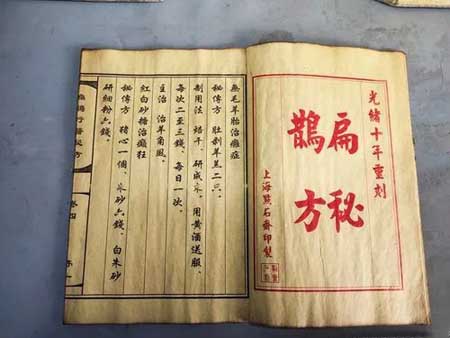 光緒十年重刻
扁鵲
秘方
上海點石齋印製
無毛羊胎治癱症
秘傳方 肚剖羊羔二只、
制用法 焙干、研成末、用黃酒送服、
每次二至三錢、每日一次、
主治 治羊角風、
紅白砂糖治癲狂
秘傳方 猪心一個、朱砂六錢、白朱砂
研細粉六錢、
卷四